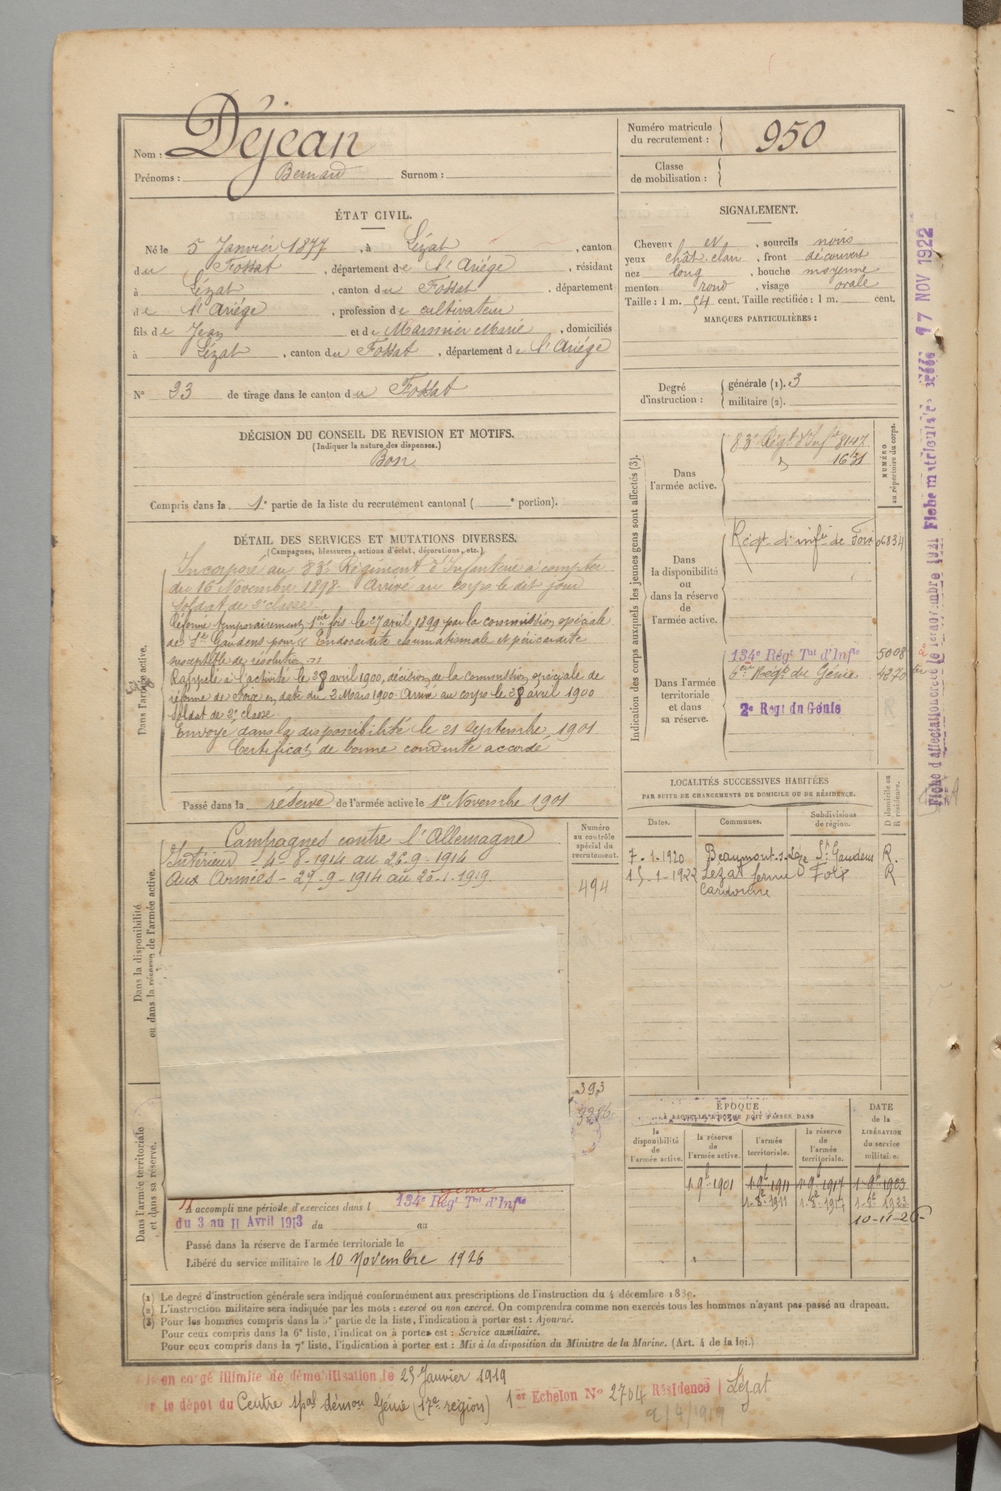 Nom : Déjean
Prénoms : Bernard Surnom :
Numéro matricule du recrutement : 950
Classe de mobilisation :
ÉTAT CIVIL.
Né le 5 Janvier 1877, à Lézat, canton
du Fossat, département de l'Ariége, résidant
à Lézat, canton du Fossat, département
de l'Ariége, profession de cultivateur
fils de Jean et de Marie, domiciliés
à Lézat, canton du Fossat, département de l'Ariége
N° 23 de tirage dans le canton du Fossat
SIGNALEMENT.
Cheveux et, sourcils noirs
yeux chât. clair, front découvert
nez long, bouche moyenne
menton rond, visage ovale
Taille : 1 m. 54 cent. Taille rectifiée : 1 m. cent.
MARQUES PARTICULIÈRES :
Degré d'instruction : générale (1). 3
militaire (2).
DÉCISION DU CONSEIL DE REVISION ET MOTIFS.
(Indiquer la nature des dispenses.)
Bon
Compris dans la 1e partie de la liste du recrutement cantonal ( e portion).
DÉTAIL DES SERVICES ET MUTATIONS DIVERSES.
(Campagnes, blessures, actions d'éclat, décorations, etc.)
Dans l'armée active.
Incorporé au 83e Régiment d'Infanterie à compter
du 16 Novembre 1898. Arrivé au corps le dit jour
Soldat de 2e classe.
Réformé temporairement 1ère fois le 7 avril 1899 par la commission spéciale
de St Gaudens pour Endocardite rhumatismale et péricardite
susceptible de résolution
Rappelé à l'activité le 28 avril 1900, décision de la Commission spéciale de
réforme de Foix en date du 2 Mars 1900. Arrivé au corps le 28 avril 1900
Soldat de 2e classe
Envoyé dans la disponibilité le 21 Septembre 1901
Certificat de bonne conduite accordé
Passé dans la réserve de l'armée active le 1er Novembre 1901
Indication des corps auxquels les jeunes gens sont affectés (3).
NUMÉRO au répertoire du corps.
Dans l'armée active.
83e Régt d'Infie 8147
" 1631
Dans la disponibilité ou dans la réserve de l'armée active.
Régt d'infie de Foix 06834
Dans l'armée territoriale et dans sa réserve.
134e Régt Tal d'Infie 5008
Régt du Génie 4270
2e Régt du Génie
LOCALITÉS SUCCESSIVES HABITÉES
PAR SUITE DE CHANGEMENTS DE DOMICILE OU DE RÉSIDENCE.
Dates. Communes. Subdivisions de région. D domicile ou R résidence.
7-1-1920 Beaumont-s-Lèze St Gaudens R.
15-1-1922 Lézat ferme Foix R
Cardonne
Dans la disponibilité ou dans la réserve de l'armée active.
Campagnes contre l'Allemagne
Intérieur - 4-8-1914 au 26-9-1914
Aux Armées - 27-9-1914 au 25-1-1919.
Numéro au contrôle spécial du recrutement.
494
393
Dans l'armée territoriale et dans sa réserve.
A accompli une période d'exercices dans l 134e Régt Tal d'Infie
du 3 au 11 Avril 1913 du au
Passé dans la réserve de l'armée territoriale le
Libéré du service militaire le 10 Novembre 1926
ÉPOQUE
A LAQUELLE L'HOMME DOIT PASSER DANS
la disponibilité de l'armée active. la réserve de l'armée active. l'armée territoriale. la réserve de l'armée territoriale.
DATE de la LIBÉRATION du service militaire.
1-9bre-1901 1-9bre-1911 1-9bre-1917 1-9bre-1923
10-11-26
(1) Le degré d'instruction générale sera indiqué conformément aux prescriptions de l'instruction du 4 décembre 1889.
(2) L'instruction militaire sera indiquée par les mots : exercé ou non exercé. On comprendra comme non exercés tous les hommes n'ayant pas passé au drapeau.
(3) Pour les hommes compris dans la 5e partie de la liste, l'indication à porter est : Ajourné.
Pour ceux compris dans la 6e liste, l'indication à porter est : Service auxiliaire.
Pour ceux compris dans la 7e liste, l'indication à porter est : Mis à la disposition du Ministre de la Marine. (Art. 4 de la loi.)
en congé illimité de démobilisation le 25 Janvier 1919
le dépôt du Centre démon Génie (17e région) 1er Echelon N° 2704 Résidence Lézat
2/4/1919
17 NOV 1922